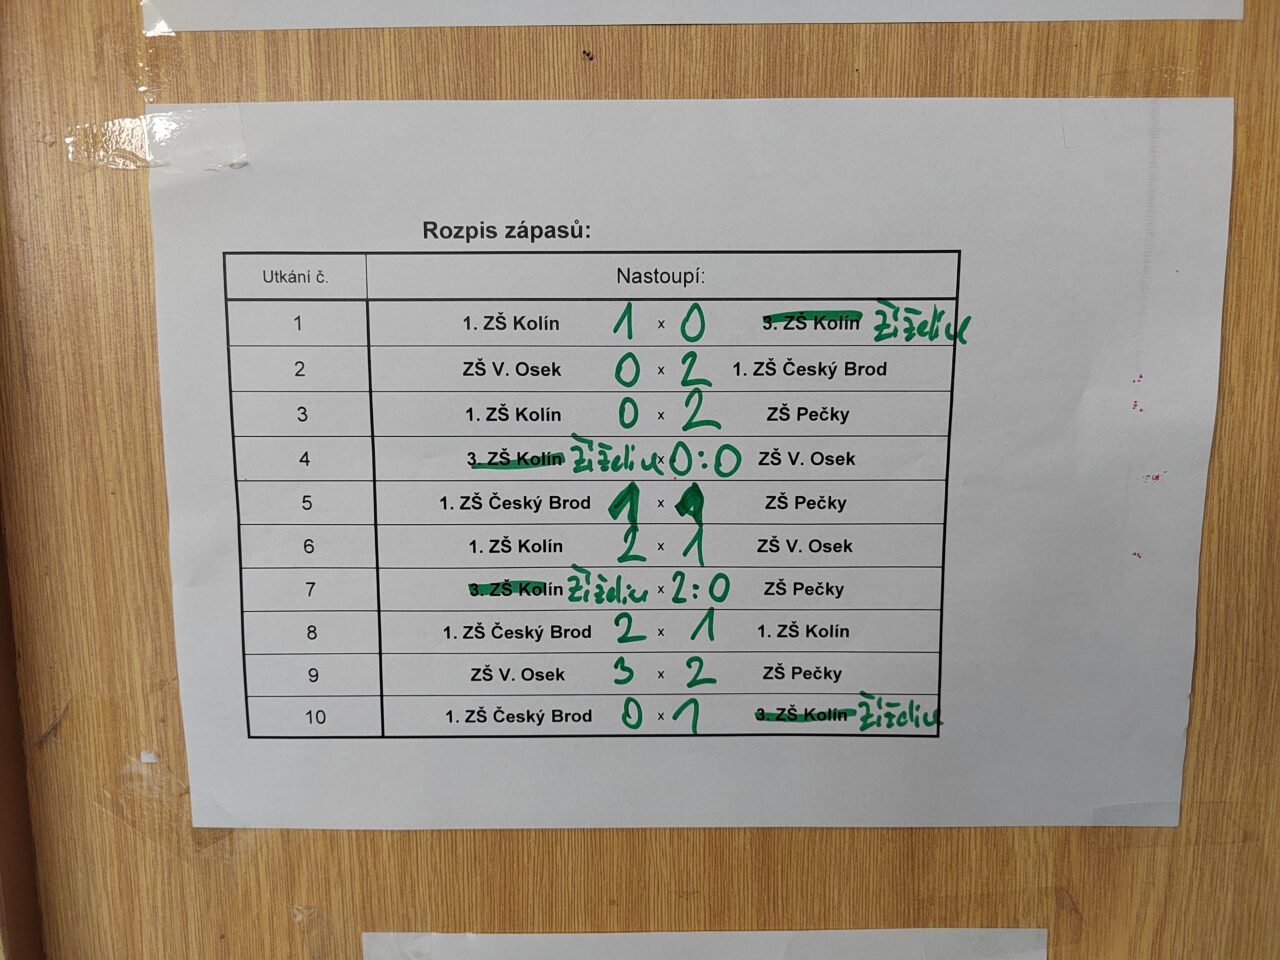 Rozpis zápasů:
Utkání č. Nastoupí:
1 1. ZŠ Kolín 1 x 0 3. ZŠ Kolín Žiželice
2 ZŠ V. Osek 0 x 2 1. ZŠ Český Brod
3 1. ZŠ Kolín 0 x 2 ZŠ Pečky
4 3. ZŠ Kolín Žiželice x 0:0 ZŠ V. Osek
5 1. ZŠ Český Brod 1 x 1 ZŠ Pečky
6 1. ZŠ Kolín 2 x 1 ZŠ V. Osek
7 3. ZŠ Kolín Žiželice x 2:0 ZŠ Pečky
8 1. ZŠ Český Brod 2 x 1 1. ZŠ Kolín
9 ZŠ V. Osek 3 x 2 ZŠ Pečky
10 1. ZŠ Český Brod 0 x 1 3. ZŠ Kolín Žiželice